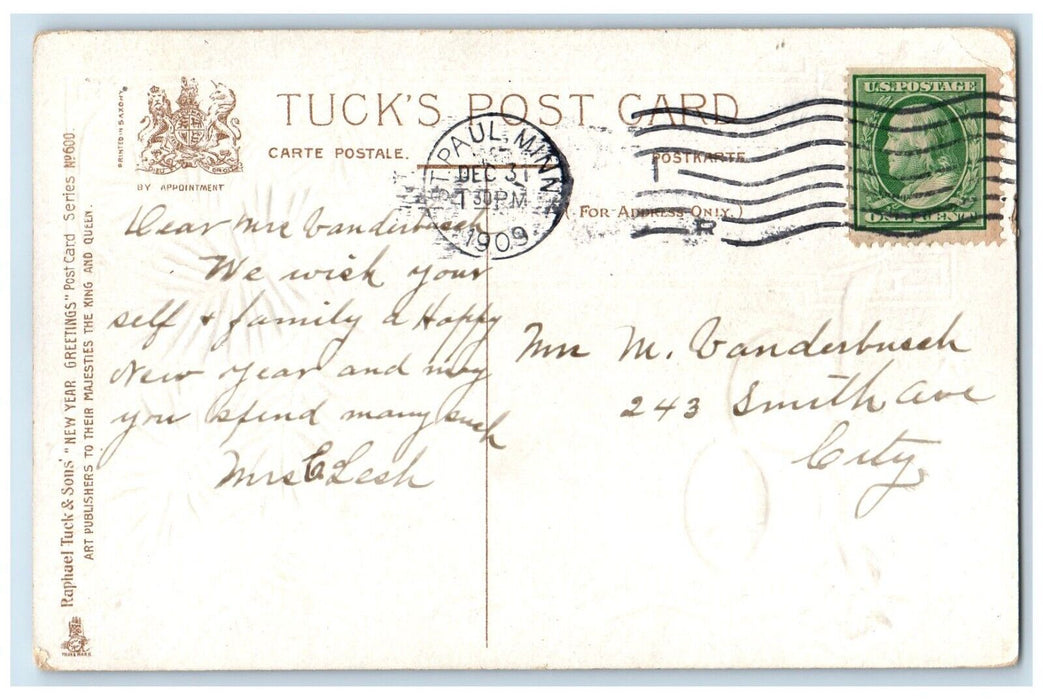 TUCK'S POST CARD
CARTE POSTALE.
POSTKARTE
(FOR ADDRESS ONLY.)
PRINTED IN SAXONY
DIEU ET MON DROIT
BY APPOINTMENT
ST PAUL, MINN
DEC 31
1 30 PM
1909
U.S. POSTAGE
ONE CENT
Dear Mrs Vanderbusch
We wish your
self & family a Happy
New Year and may
you spend many such
Mrs C Lesh
Mrs M. Vanderbusch
243 Smith Ave
City
Raphael Tuck & Sons' "NEW YEAR GREETINGS" Post Card Series Nº 600.
ART PUBLISHERS TO THEIR MAJESTIES THE KING AND QUEEN.
TRADE MARK